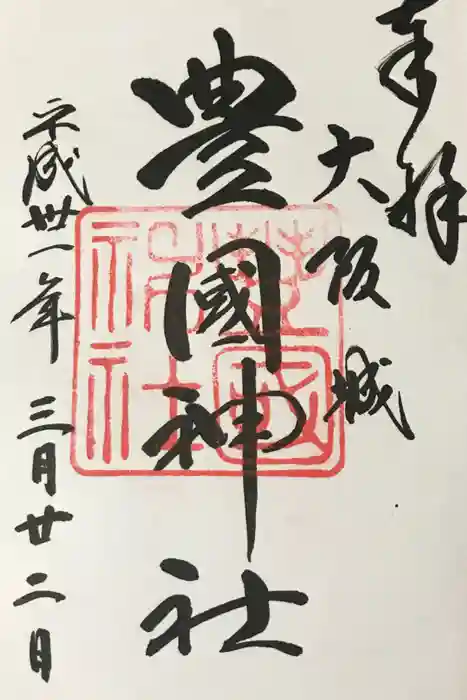 奉拝
大阪城
豊國神社
平成卅一年三月廿二日
豊國神社